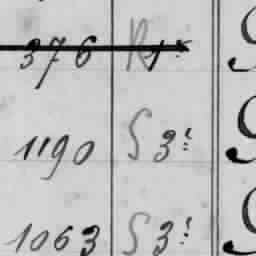 376 R 1
1190 S 3
1063 S 3